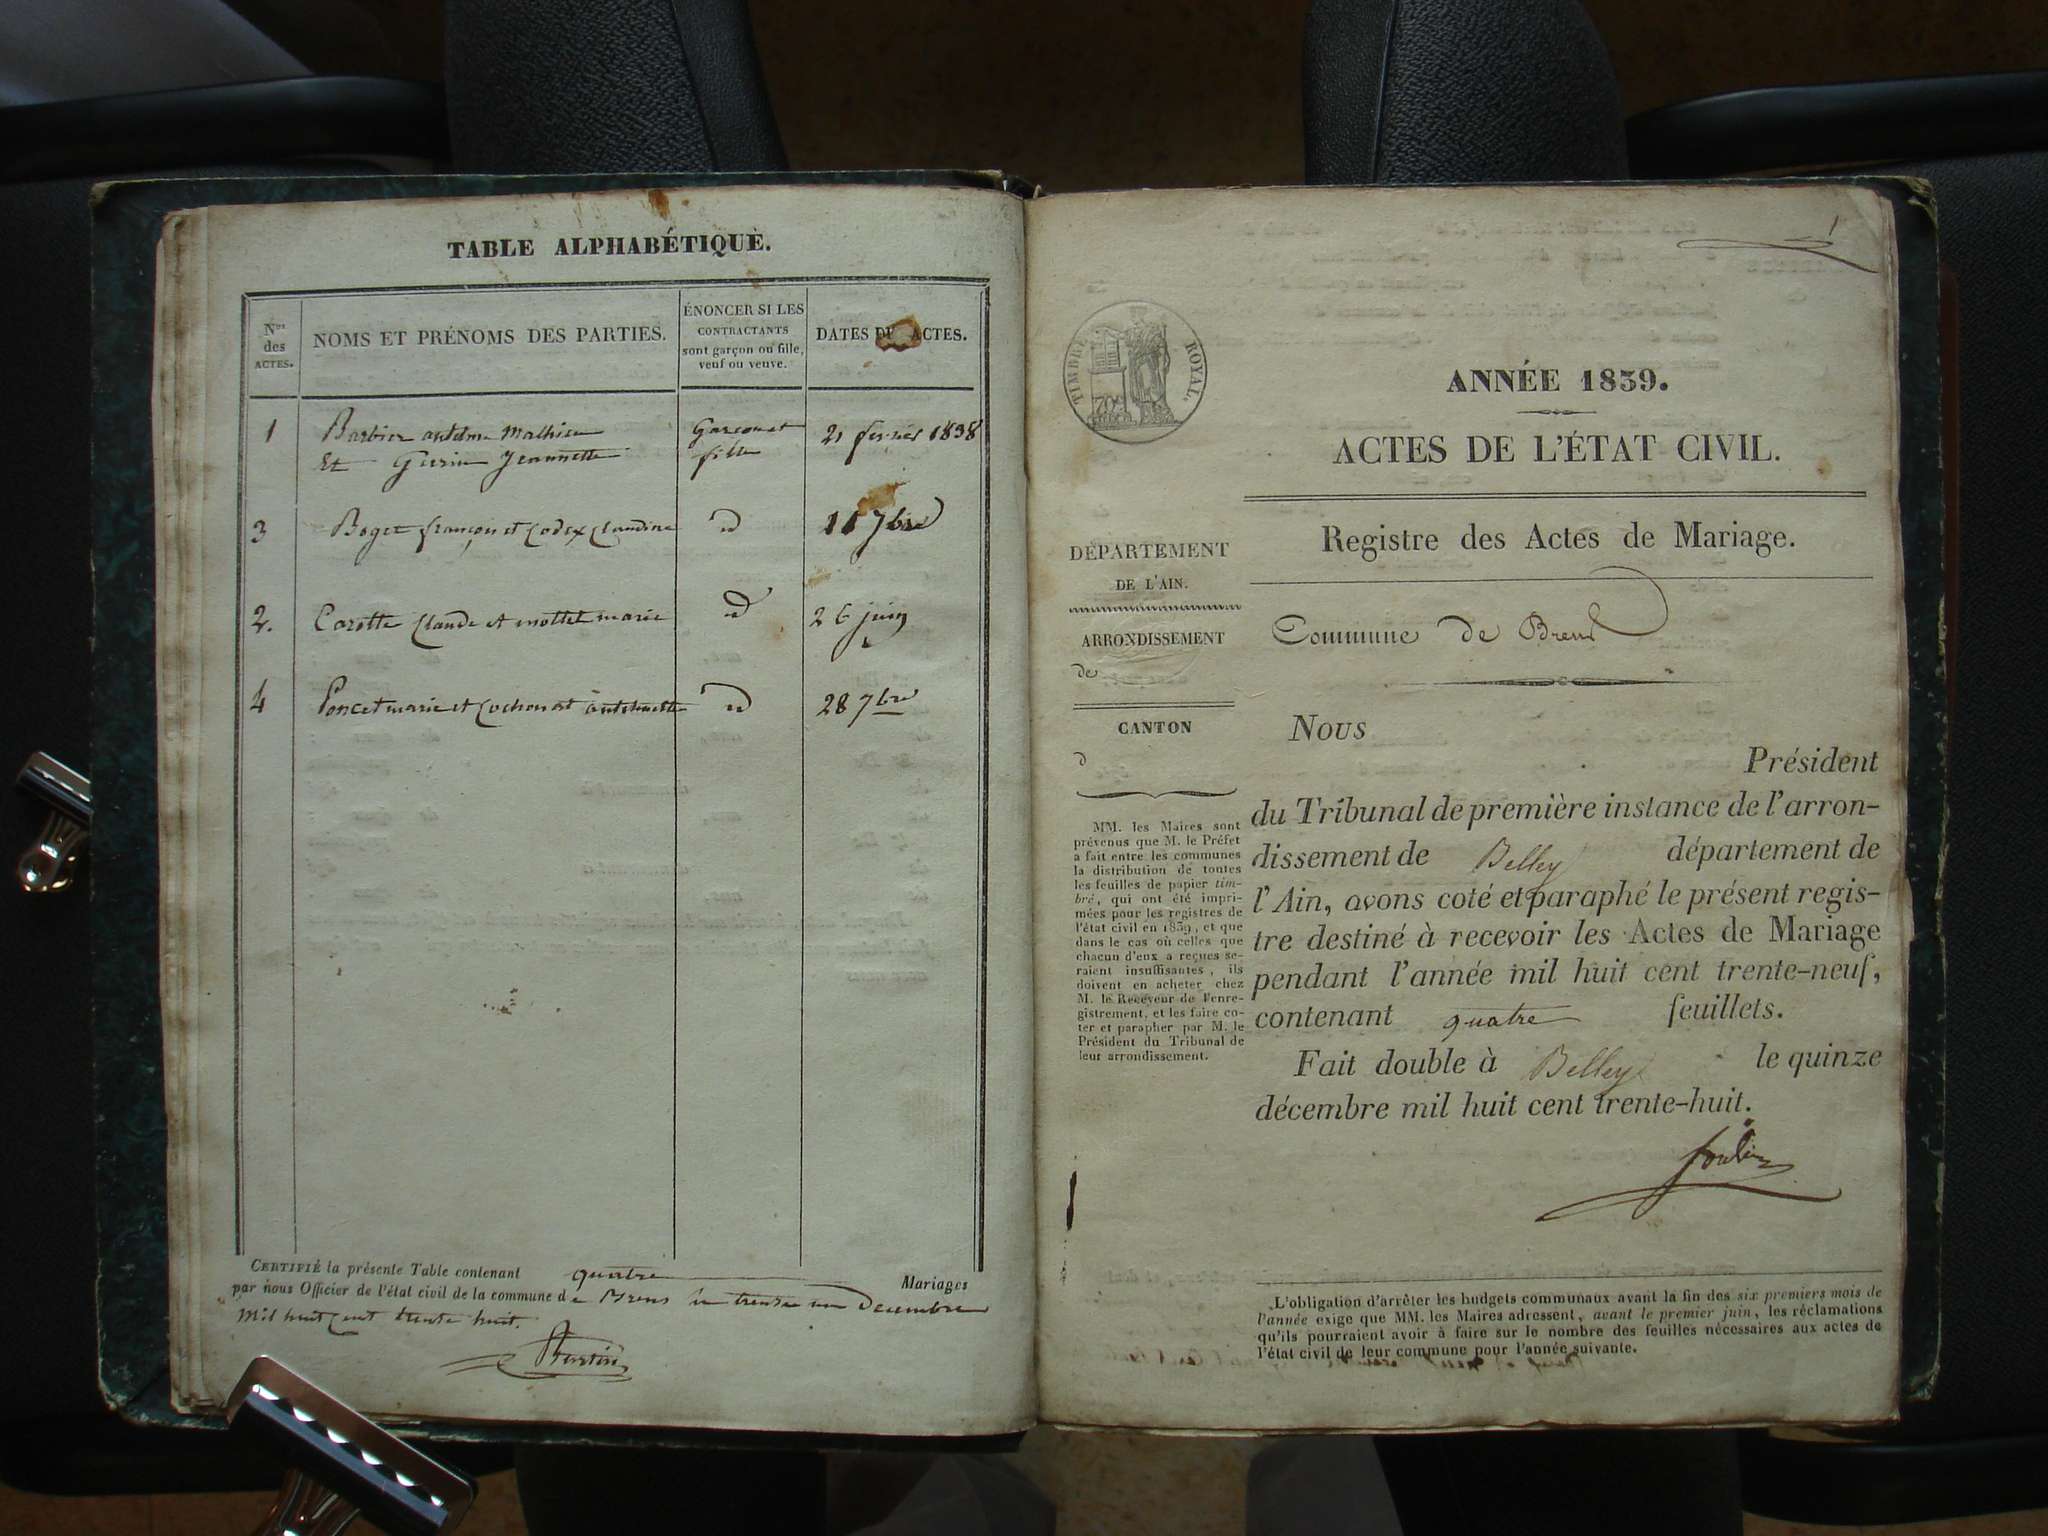 TABLE ALPHABÉTIQUE.
Nos des ACTES.
NOMS ET PRÉNOMS DES PARTIES.
ÉNONCER SI LES
CONTRACTANTS
sont garçon ou fille,
veuf ou veuve.
DATES DES ACTES.
1 Barbier antelme Mathieu Garçon et 21 fevrier 1838
Et Guerin Jeannette fille
3 Boget françois et Codex Claudine id 7bre
2. Carotte Claude et mottet marie id 26 juin
4 Poncet marie et Cochonat antoinette id 28 7bre
CERTIFIÉ la présente Table contenant quatre Mariages
par nous Officier de l'état civil de la commune de Brens le trente un Decembre
mil huit Cent trente huit.
1
TIMBRE ROYAL.
70c
ANNÉE 1839.
ACTES DE L'ÉTAT CIVIL.
Registre des Actes de Mariage.
DÉPARTEMENT
DE L'AIN.
ARRONDISSEMENT
de
CANTON
d
Commune de Brens
MM. les Maires sont
prévenus que M. le Préfet
a fait entre les communes
la distribution de toutes
les feuilles de papier tim-
bré, qui ont été impri-
mées pour les registres de
l'état civil en 1839, et que
dans le cas où celles que
chacun d'eux a reçues se-
raient insuffisantes, ils
doivent en acheter chez
M. le Receveur de l'enre-
gistrement, et les faire co-
ter et parapher par M. le
Président du Tribunal de
leur arrondissement.
Nous
Président
du Tribunal de première instance de l'arron-
dissement de Belley département de
l'Ain, avons coté et paraphé le présent regis-
tre destiné à recevoir les Actes de Mariage
pendant l'année mil huit cent trente-neuf,
contenant quatre feuillets.
Fait double à Belley le quinze
décembre mil huit cent trente-huit.
L'obligation d'arrêter les budgets communaux avant la fin des six premiers mois de
l'année exige que MM. les Maires adressent, avant le premier juin, les réclamations
qu'ils pourraient avoir à faire sur le nombre des feuilles nécessaires aux actes de
l'état civil de leur commune pour l'année suivante.